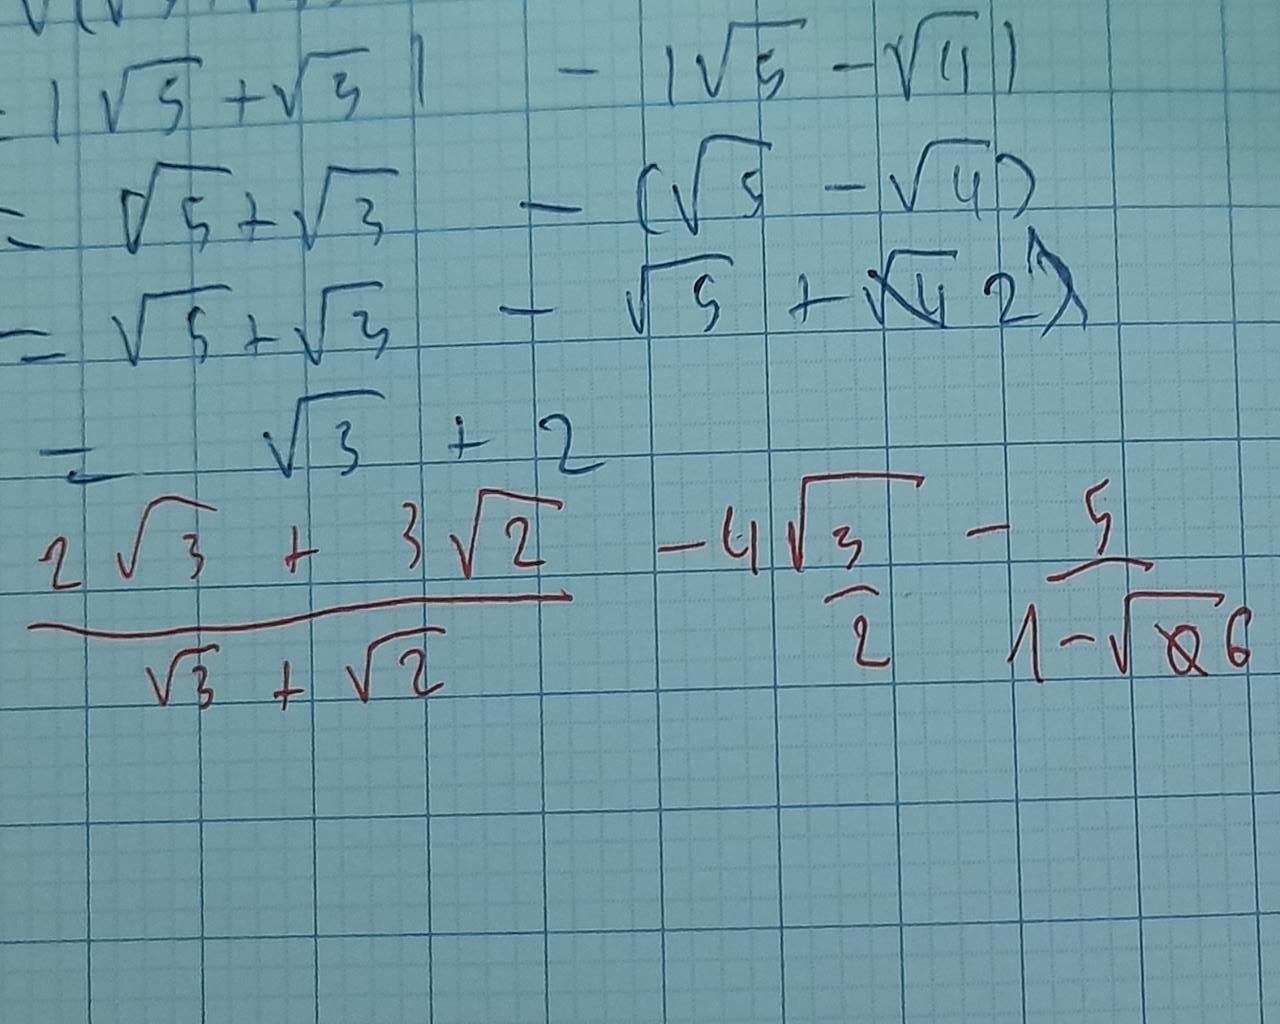 = |√5 + √3| - |√5 - √4|
= √5 + √3 - (√5 - √4)
= √5 + √3 - √5 + 2
= √3 + 2
2√3 + 3√2 / √3 + √2 - 4√3/2 - 5 / 1 - √6